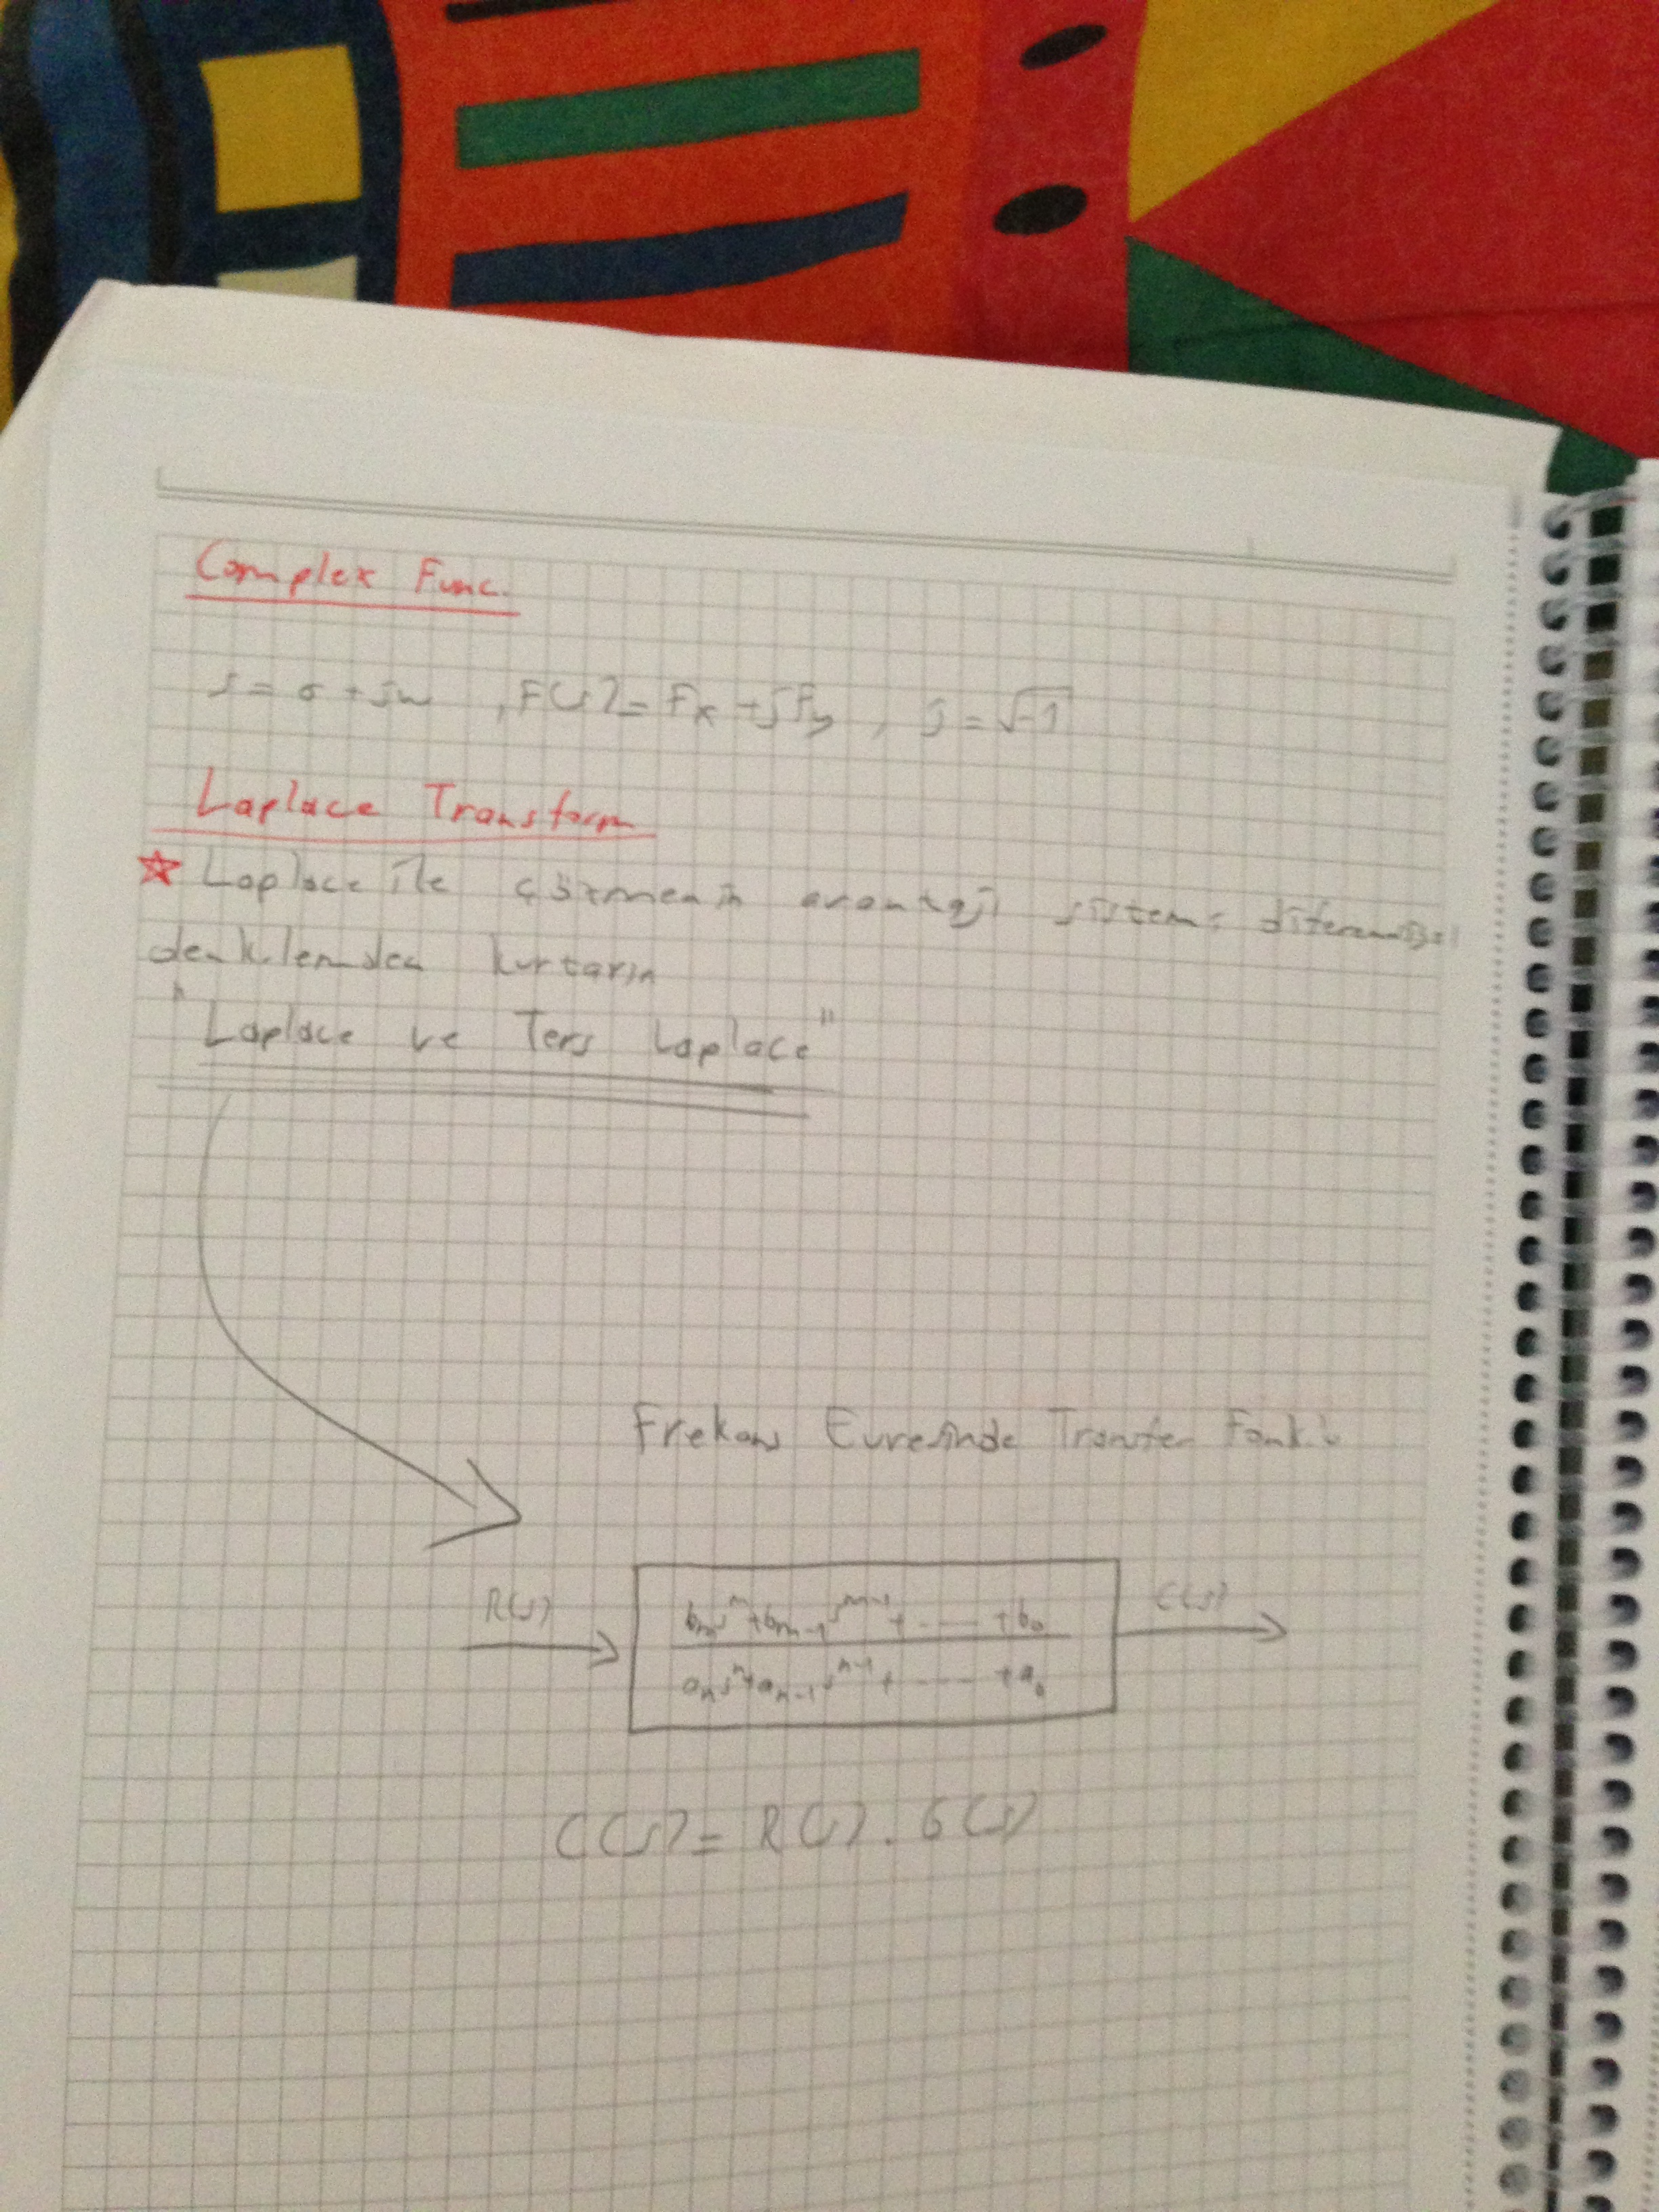 Complex Func.
s = σ + jw , F(s) = Fx + jFy , j = √-1
Laplace Transform
Laplace ile çözmenin avantajı sistemi diferansiyel
denklemden kurtarın
"Laplace ve Ters Laplace"
Frekans Evresinde Transfer Fonk.
R(s)
bₘsᵐ + bₘ₋₁sᵐ⁻¹ + ...... + b₀
C(s)
aₙsⁿ + aₙ₋₁sⁿ⁻¹ + ...... + a₀
C(s) = R(s) . G(s)